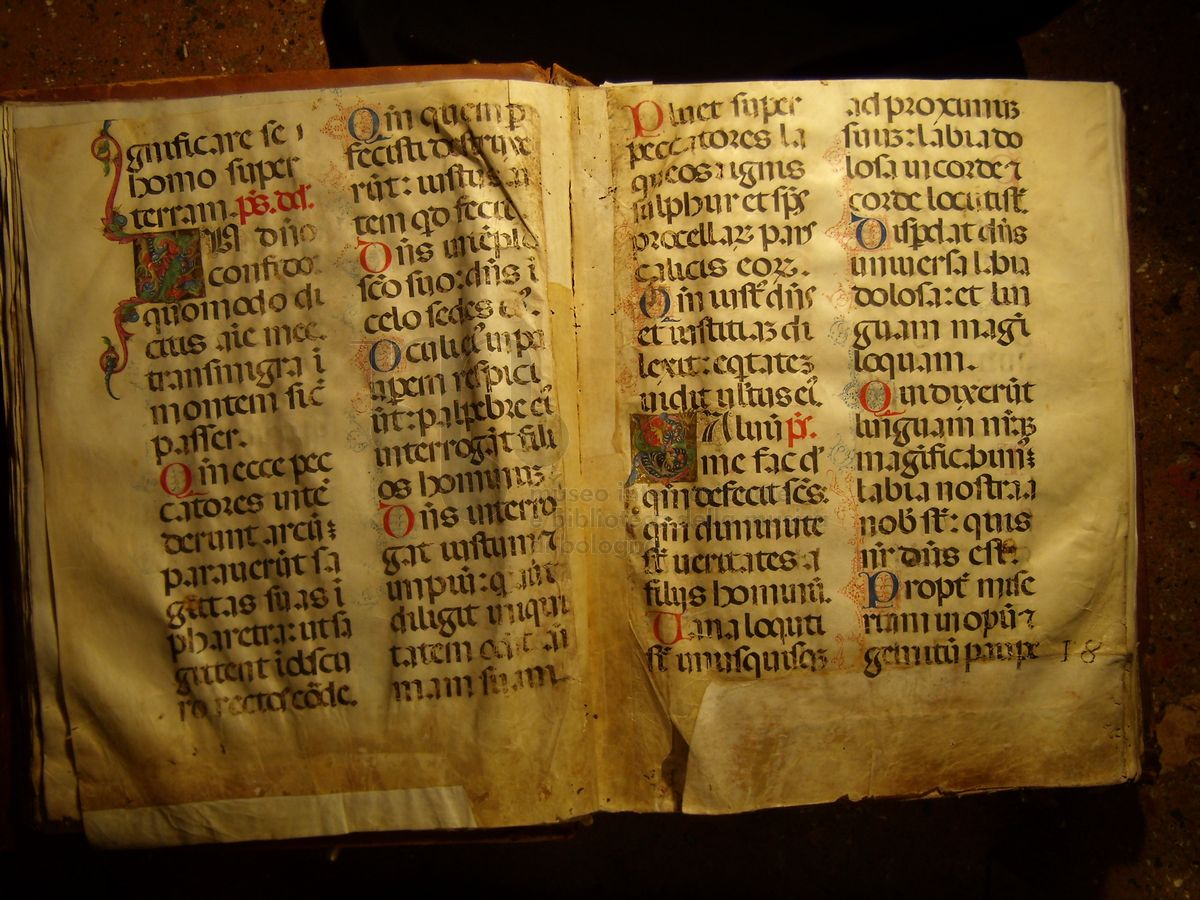 gnificare se
homo super
terram. p̄s. dd̄.
IN dño
confido:
quomodo di
citis aīe mee.
transmigra i
montem sic̄
passer.
Qm̄ ecce pec
catores intē
derunt arcū:
parauerūt sa
gittas suas i
pharetra: ut sa
gittent ī obscu
ro rectos cōde.
Qm̄ que p
fecisti destruxe
rūt: iustus a
tem qd fecit
Dn̄s in tēplo
sc̄o suo: dn̄s i
celo sedes
Oculi in pa
uperem respici
ūt: palpebre ei
interrogāt fili
os hominuꝫ
Dn̄s interro
gat iustum ⁊
impiū: q̄ aūt
diligit iniqui
tatem odit āi
mam suam
Pluet super
peccatores la
queos ignis
sulphur et sp̄s
procellaꝝ pars
calicis eoꝝ.
Qm̄ iust' dn̄s
et iustitias di
lexit: eqtateꝫ
uidit uultus ei'.
Saluū p̄s.
me fac d'
qm̄ defecit sc̄s:
qm̄ diminute
st̄ ueritates a
filijs hominū.
Uana locuti
st̄ unusquisqꝫ
ad proximuꝫ
suuꝫ: labia do
losa in corde ⁊
corde locuti st̄.
Disp̄dat dn̄s
uniuersa labia
dolosa: et lin
guam magi
loquam.
Qui dixerūt
linguam nr̄aꝫ
magificabim':
labia nostra a
nob̄ st̄: quis
nr̄ dn̄s est.
Propt̄ mise
riam inopū ⁊
gemitū paupe 18
museo
biblioteca
bologna